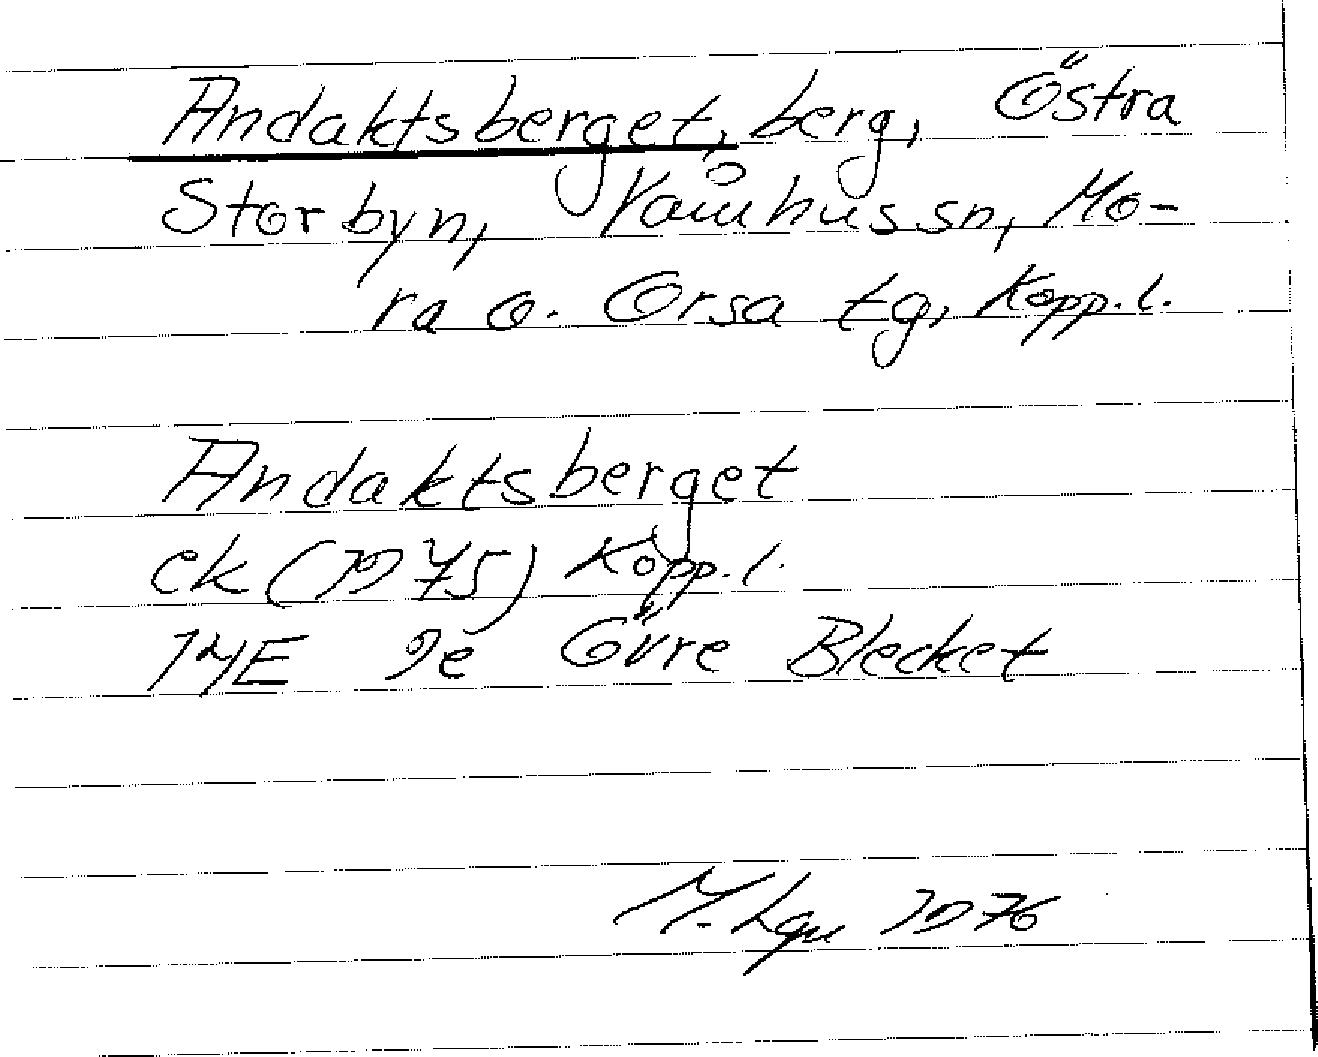 Andaktsberget, berg, Östra
Storbyn, Våmhus sn, Mo-
ra o. Orsa tg, Kopp. l.
Andaktsberget
ek (1975) Kopp. l.
14E 9e Övre Blecket
M. 1976